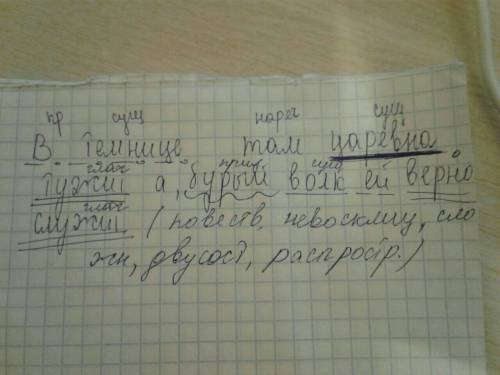 пр сущ нареч сущ
В темнице там царевна
глаг прил сущ
тужит а, бурый волк ей верно
глаг
служит (повеств, невосклиц, сло
жн, двусост, распростр.)